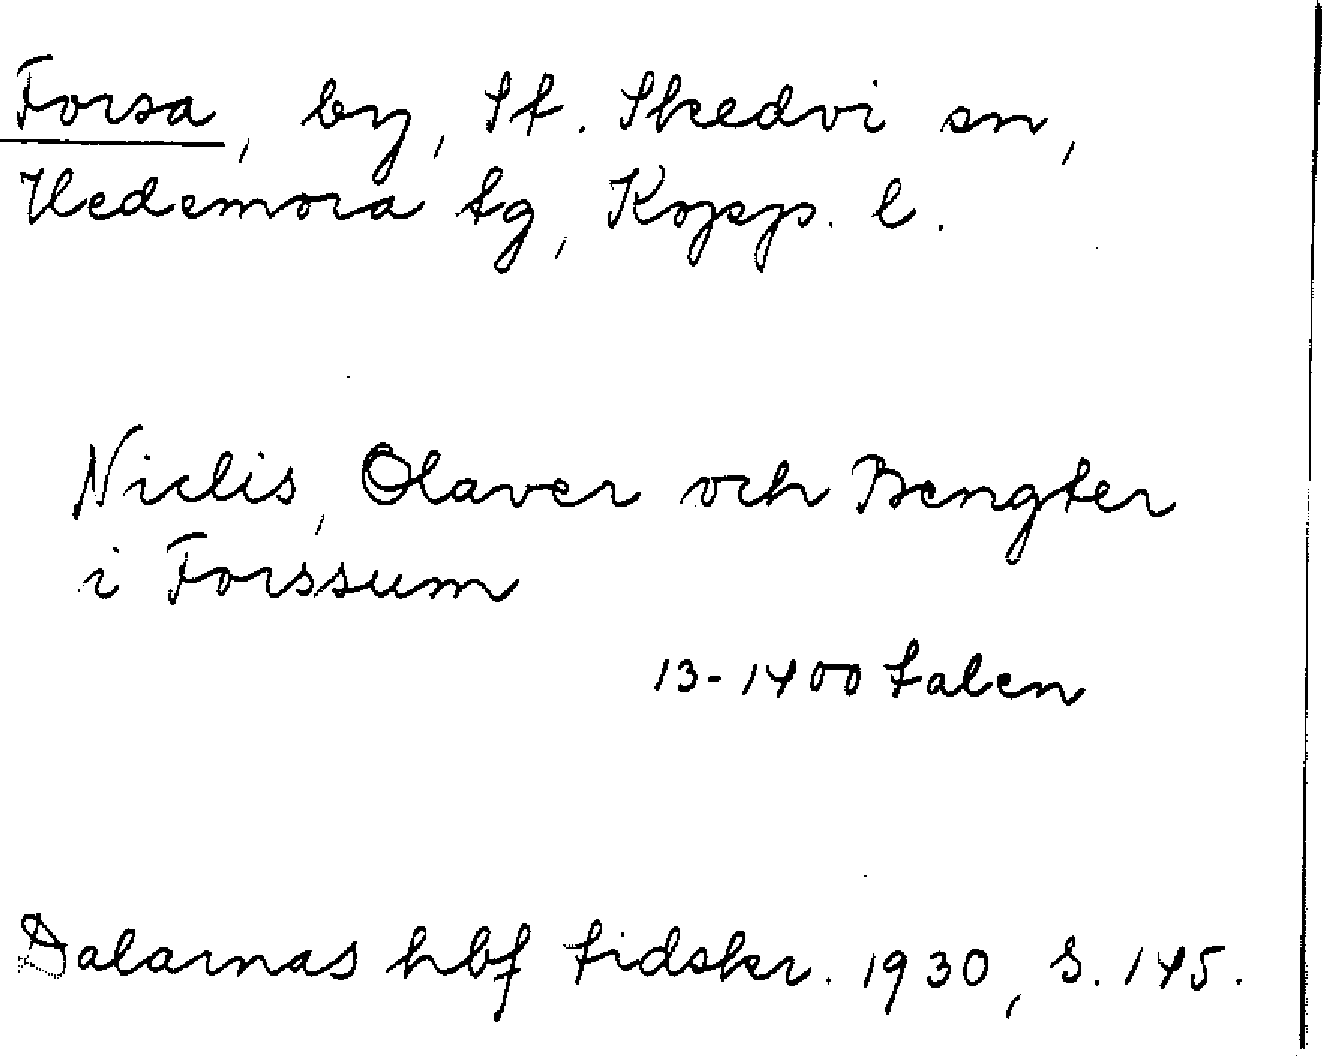 Forsa, by, St. Skedvi sn,
Hedemora tg, Kopp. l.
Niclis, Olaver och Bengter
i Forssum
13-1400 talen
Dalarnas hbf tidskr. 1930, s. 145.